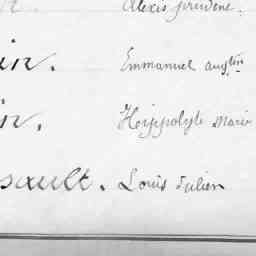 Alexis prudent.
in. Emmanuel aug.tin
in. Hyppolyte Marie
sault. Louis Julien